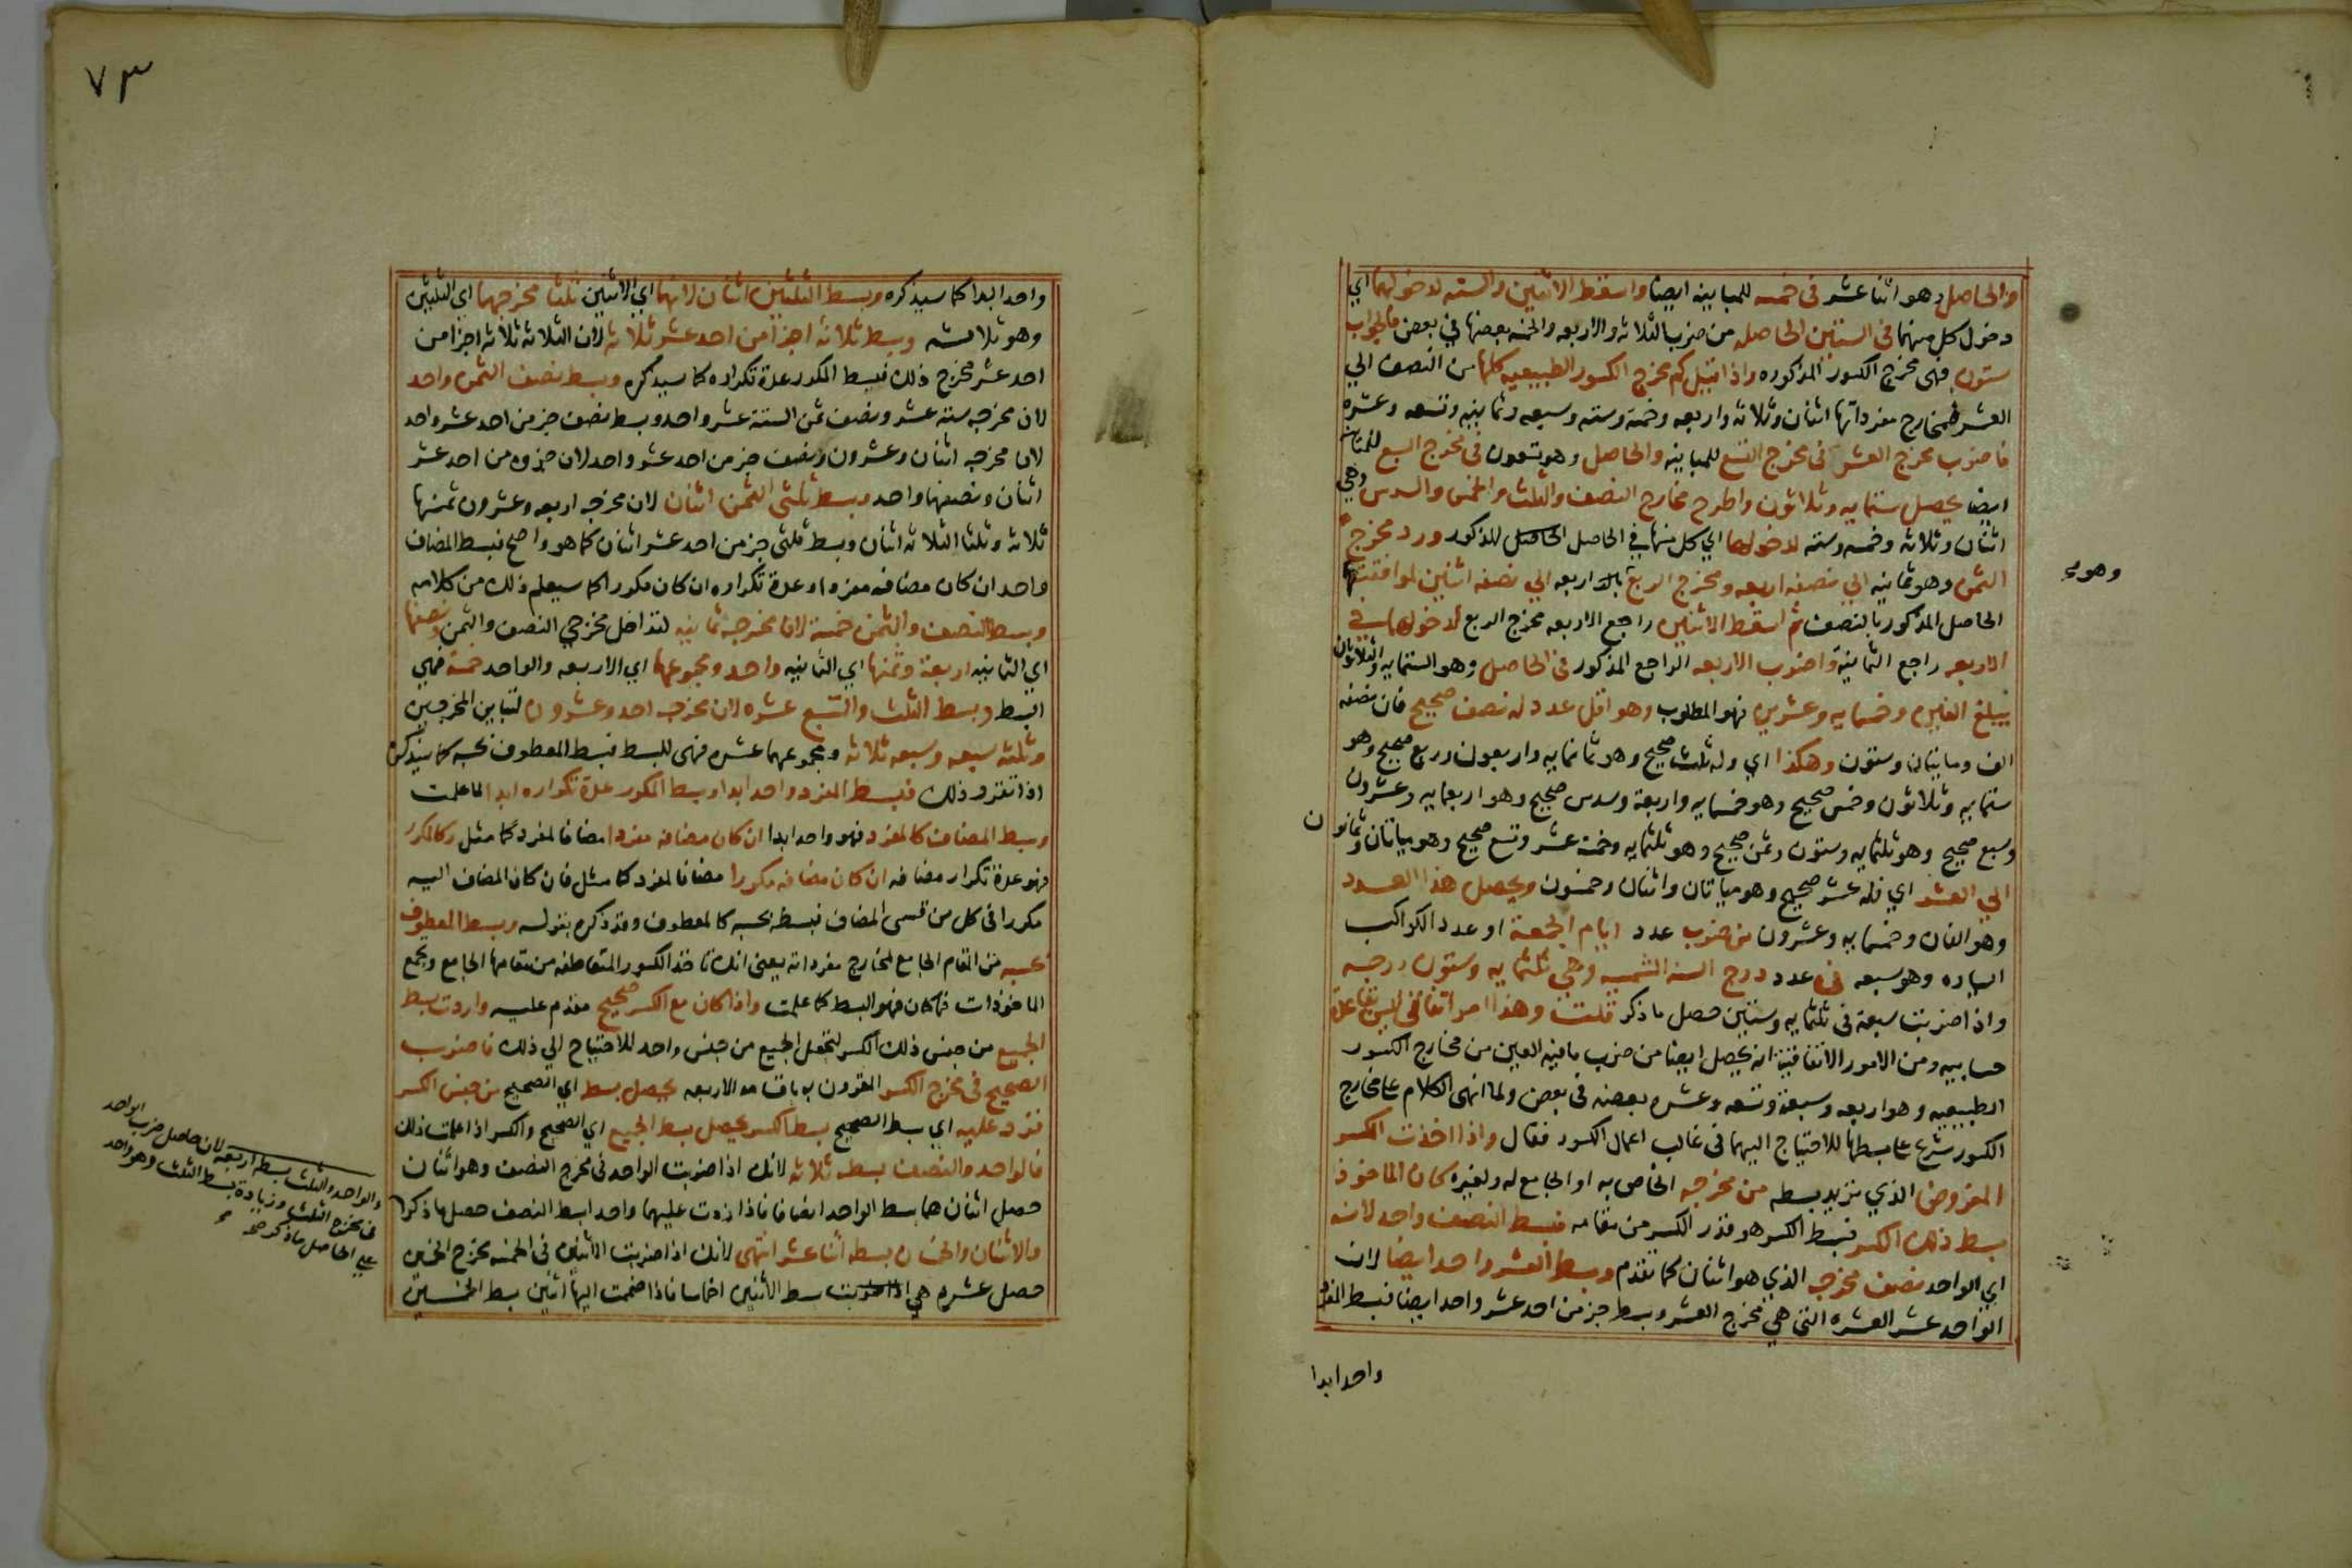 والحاصل وهو اثنا عشر في خمسه للمباينه ايضا واسقط الاثنين والسته لدخولهما اي
دخول كل منهما في الستين الحاصله من ضرب الثلاثه والاربعه والخمسه بعضها في بعض فالجواب
ستون فهي مخرج الكسور المذكوره واذا قيل كم مخرج الكسور الطبيعيه كلها من النصف الي
العشر فمخارج مفرداتها اثنان وثلاثه واربعه وخمسة وسته وسبعه وثمانيه وتسعه وعشره
فاضرب مخرج العشر في مخرج التسع للمباينه والحاصل وهو تسعون في مخرج السبع للمباينه
ايضا يحصل ستمايه وثلاثون واطرح مخارج النصف والثلث والخمس والسدس وهي
اثنان وثلاثه وخمسه وسته لدخولها اي كل منها في الحاصل الحاصل المذكور ورد مخرج
الثمن وهو ثمانيه الي نصفه اربعه ومخرج الربع اربعه الي نصفه اثنين لموافقتهما
الحاصل المذكور بالنصف ثم اسقط الاثنين راجع الاربعه مخرج الربع لدخولهما في
الاربعه راجع الثمانية واضرب الاربعه الراجع المذكور في الحاصل وهو الستمايه والثلاثون
يبلغ الفين وخمسمايه وعشرين فهو المطلوب وهو اقل عدد له نصف صحيح فان نصفه
الف ومايتان وستون وهكذا اي وله ثلث صحيح وهو ثمانمايه واربعون وربع صحيح وهو
ستمايه وثلاثون وخمس صحيح وهو خمسمايه واربعة وسدس صحيح وهو اربعمايه وعشرون
وسبع صحيح وهو ثلثمايه وستون وثمن صحيح وهو ثلثمايه وخمسة عشر وتسع صحيح وهو ميتان وثمانون
الي العشر اي فله عشر صحيح وهو ميتان واثنان وخمسون ويحصل هذا العدد
وهو الفان وخمسمايه وعشرون من ضرب عدد ايام الجمعة او عدد الكواكب
السياره وهو سبعه في عدد درج السنه الشمسيه وهي ثلثمايه وستون درجه
واذا ضربت سبعة في ثلثمايه وستين حصل ما ذكر قلت وهذا امر اتفاقي ليس بقاعدة
حسابيه ومن الامور الاتفاقية انه يحصل ايضا من ضرب ما فيه العين من مخارج الكسور
الطبيعيه وهو اربعه وسبعة وتسعه وعشره بعضه في بعض ولما انهى الكلام علي مخارج
الكسور شرع علي بسطها للاحتياج اليهما في غالب اعمال الكسور فقال واذا اخذت الكسر
المفروض الذي تريد بسطه من مخرجه الخاص به او الجامع له ولغيره كان الماخوذ
بسط ذلك الكسر فبسط الكسر هو قدر الكسر من مقامه فبسط النصف واحد لانه
اي الواحد نصف مخرجه الذي هو اثنان كما تقدم وبسط العشر واحد ايضا لان
الواحد عشر العشره التي هي مخرج العشر وبسط جز من احد عشر واحد ايضا فبسط المفرد
واحد ابدا
وهو
٧٣
واحد ابدا كما سيذكره وبسط الثلثين اثنان لانهما اي الاثنين ثلثا مخرجهما اي الثلثين
وهو ثلاثه وبسط ثلاثه اجزا من احد عشر ثلاثه لان الثلاثه ثلاثه اجزا من
احد عشر مخرج ذلك فبسط المكرر عدة تكراره كما سيذكره وبسط نصف الثمن واحد
لان مخرجه سته عشر ونصف ثمن الستة عشر واحد وبسط نصف جز من احد عشر واحد
لان مخرجه اثنان وعشرون ونصف جز من احد عشر واحد لان جزوه من احد عشر
اثنان ونصفهما واحد وبسط ثلثي الثمن اثنان لان مخرجه اربعه وعشرون ثمنها
ثلاثه وثلثا الثلاثه اثنان وبسط ثلثي جز من احد عشر اثنان كما هو واضح فبسط المضاف
واحد ان كان مضافه مفردا او عدة تكراره ان كان مكررا كما سيعلم ذلك من كلامه
وبسط النصف والثمن خمسة لان مخرجه ثمانيه لتداخل مخرجي النصف والثمن ونصفها
اي الثمانيه اربعة وثمنها اي الثمانيه واحد ومجموعهما اي الاربعه والواحد خمسة فهي
البسط وبسط الثلث والسبع عشره لان مخرجه احد وعشرون لتباين المخرجين
وثلثه سبعه وسبعه ثلاثه ومجموعهما عشره فهي البسط فبسط المعطوف بحسبه كما سيذكره
اذا تقرر ذلك فبسط المفرد واحد ابدا وبسط المكرر عدة تكراره ابدا لما علمت
وبسط المضاف كالمفرد فهو واحد ابدا ان كان مضافه مفردا مضافا لمفرد كما مثل وكالمكرر
فهو عدة تكرار مضافه ان كان مضافه مكررا مضافا لمفرد كما مثل فان كان المضاف اليه
مكررا في كل من قسمي المضاف فبسطه بحسبه كالمعطوف وقد ذكره بقوله وبسط المعطوف
بحسبه من المقام الجامع لمخارج مفرداته يعني انك تاخذ الكسور المتعاطفه من مقامها الجامع وتجمع
الماخوذات فما كان فهو البسط كما علمت واذا كان مع الكسر صحيح مقدم عليه واردت بسط
الجميع من جنس ذلك الكسر لتجعل الجميع من جنس واحد للاحتياج الي ذلك فاضرب
الصحيح في مخرج الكسر المقرون به باقسامه الاربعه يحصل بسط اي الصحيح من جنس الكسر
فزد عليه اي بسط الصحيح بسط الكسر يحصل بسط الجميع اي الصحيح والكسر اذا علمت ذلك
فالواحد والنصف بسطه ثلاثه لانك اذا ضربت الواحد في مخرج النصف وهو اثنان
حصل اثنان هما بسط الواحد انصافا فاذا زدت عليهما واحد ابسط النصف حصل ما ذكر
والاثنان والخمسان بسطه اثنا عشر انتهى لانك اذا ضربت الاثنين في الخمسه مخرج الخمسين
حصل عشره هي بسط الاثنين اخماسا فاذا ضممت اليها اثنين بسط الخمسين
والواحد والثلث بسطه اربعه لان حاصل ضرب الواحد
في مخرج الثلث وزيادة بسط الثلث وهو واحد
علي الحاصل ما ذكر صح